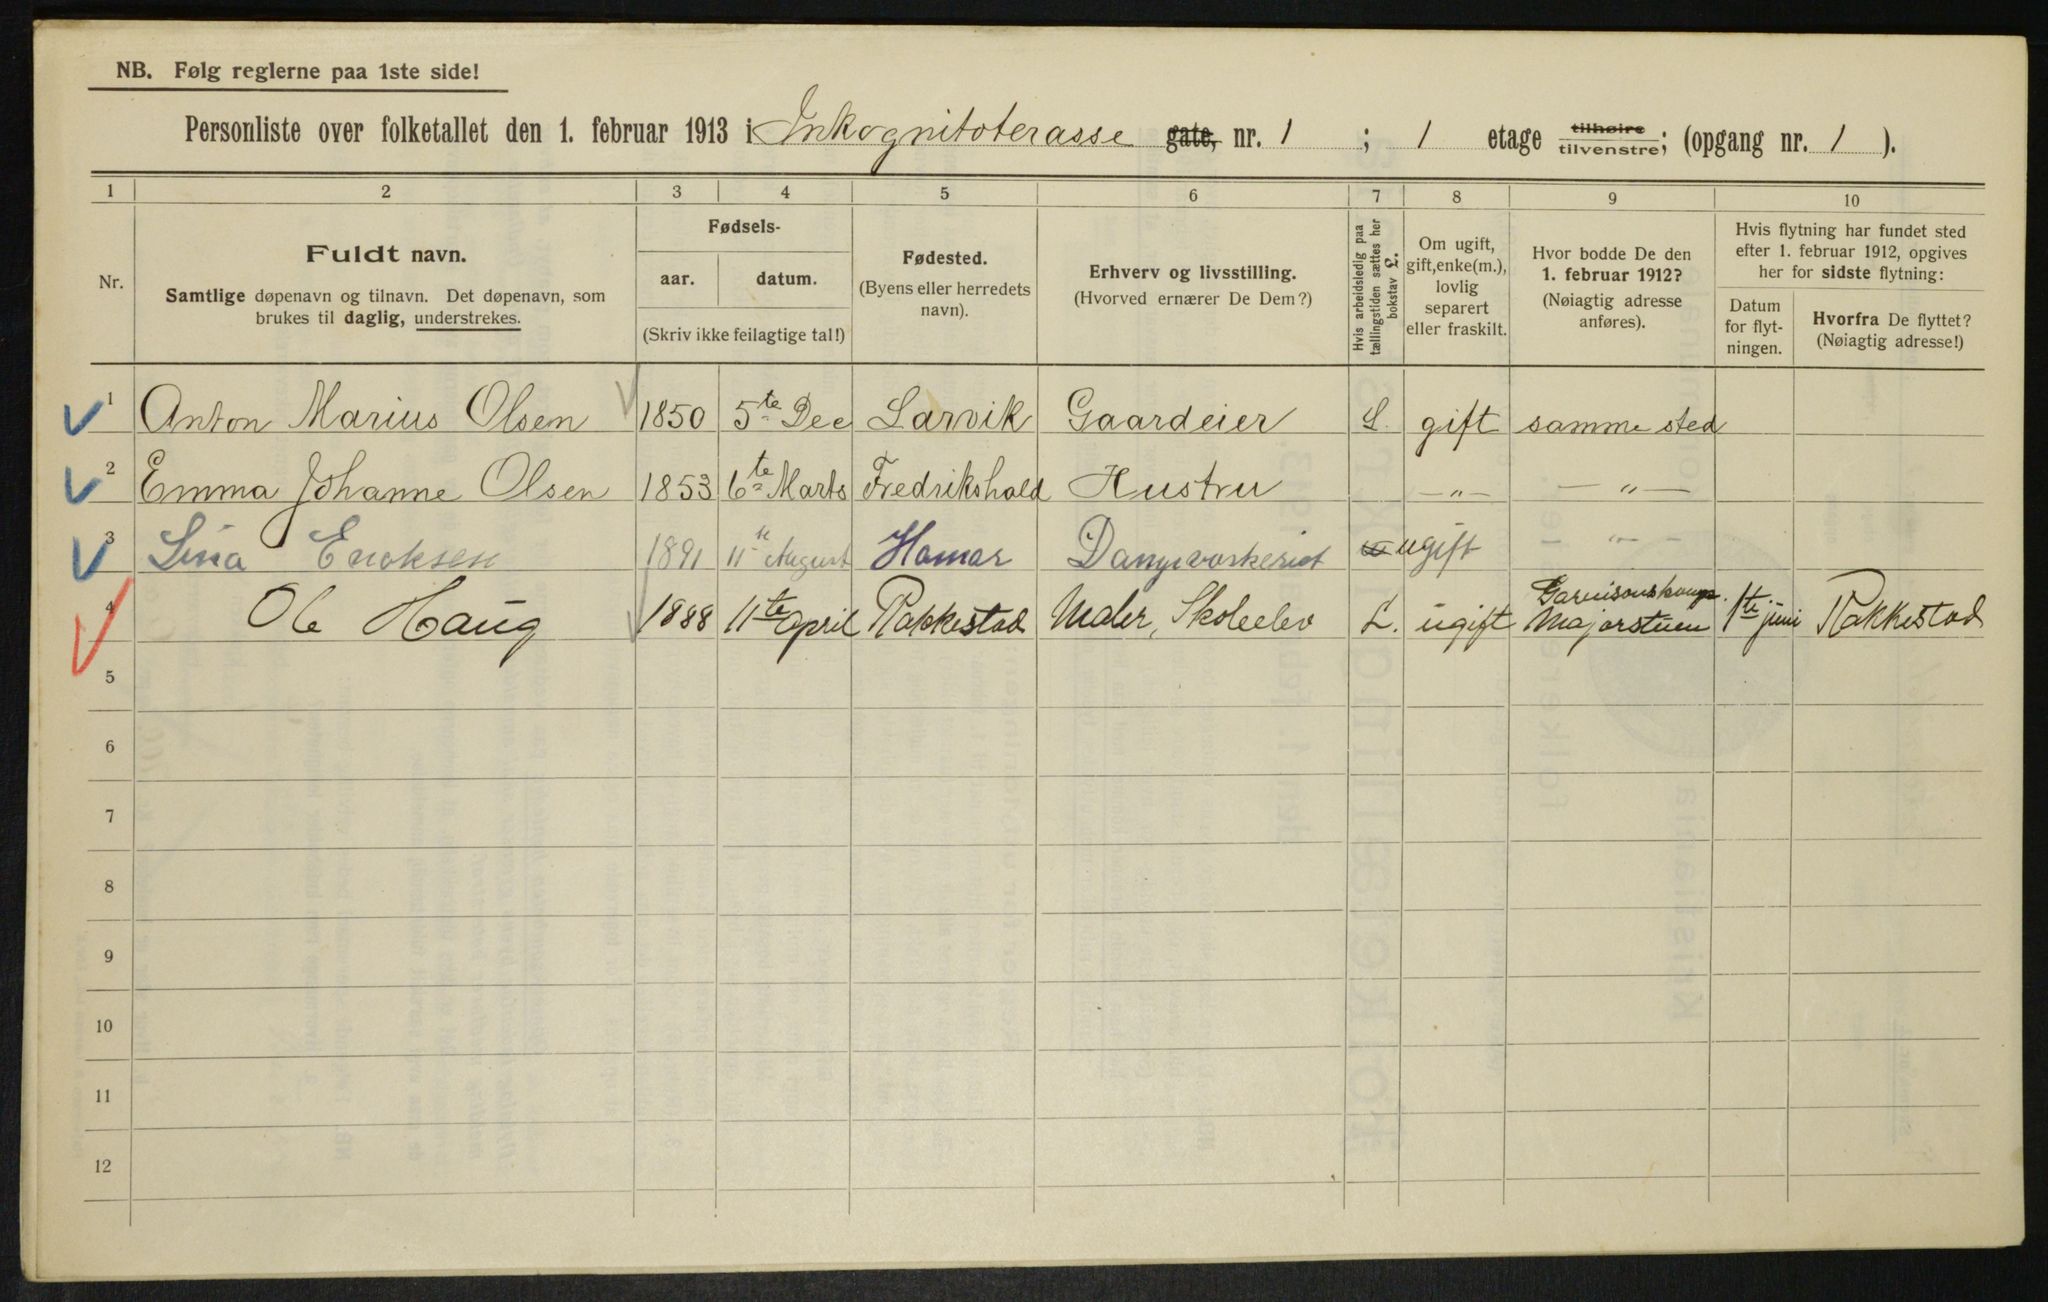 NB. Følg reglerne paa 1ste side!
Personliste over folketallet den 1. februar 1913 i Inkognitoterasse gate, nr. 1 ; 1 etage tilhøire tilvenstre; (opgang nr. 1 ).
1 2 3 4 5 6 7 8 9 10
Nr.
Fuldt navn.
Samtlige døpenavn og tilnavn. Det døpenavn, som
brukes til daglig, understrekes.
Fødsels-
aar. datum.
(Skriv ikke feilagtige tal!)
Fødested.
(Byens eller herredets
navn).
Erhverv og livsstilling.
(Hvorved ernærer De Dem?)
Hvis arbeidsledig paa
tællingstiden sættes her
bokstav L.
Om ugift,
gift, enke(m.),
lovlig
separert
eller fraskilt.
Hvor bodde De den
1. februar 1912?
(Nøiagtig adresse
anføres).
Hvis flytning har fundet sted
efter 1. februar 1912, opgives
her for sidste flytning:
Datum
for flyt-
ningen.
Hvorfra De flyttet?
(Nøiagtig adresse!)
1 Anton Marius Olsen 1850 5te Dec Larvik Gaardeier L. gift samme sted
2 Emma Johanne Olsen 1853 6te Marts Fredrikshald Hustru — " — — " —
3 Lina Eriksen 1891 11te August Hamar ugift — " —
4 Ole Haug 1888 11te April Rakkestad Maler, Skoleelev L. ugift Garnisonskomp. Majorstuen 1te juni Rakkestad
5
6
7
8
9
10
11
12